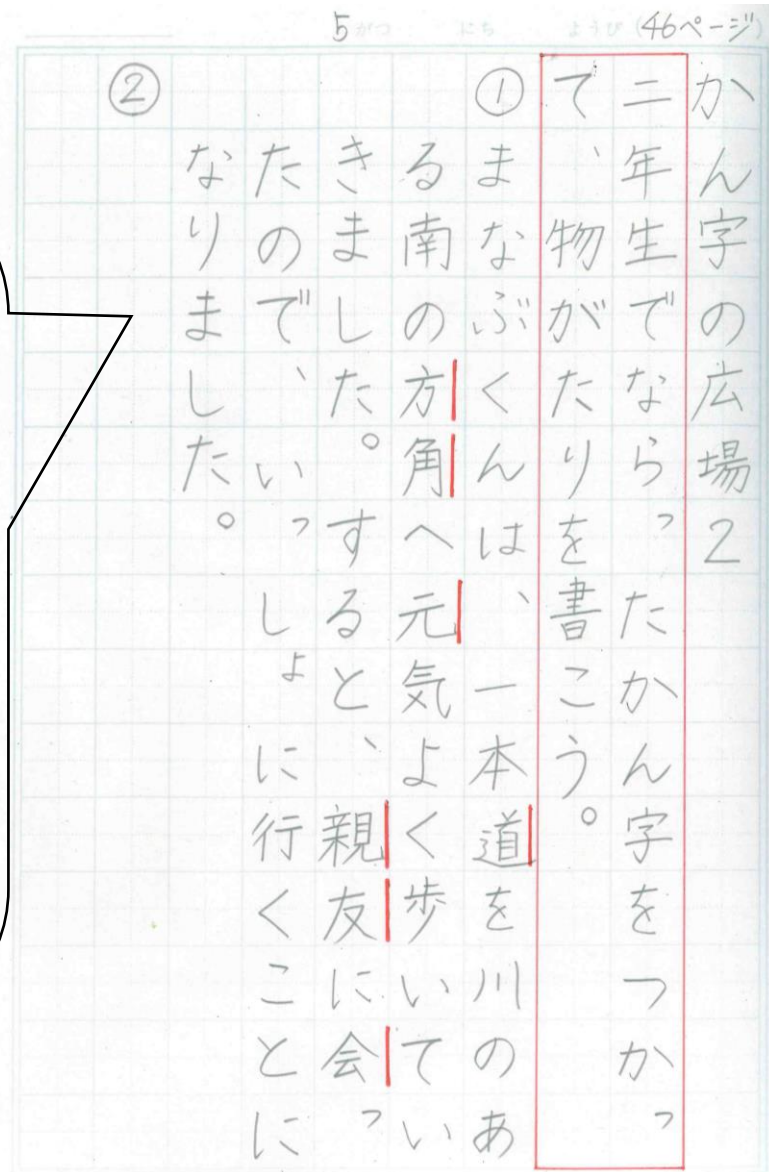 5がつ にち ようび(46ページ)
かん字の広場2
二年生でならったかん字をつかっ
て、物がたりを書こう。
①まなぶくんは、一本道を川のあ
る南の方角へ元気よく歩いてい
きました。すると、親友に会っ
たので、いっしょに行くことに
なりました。
②